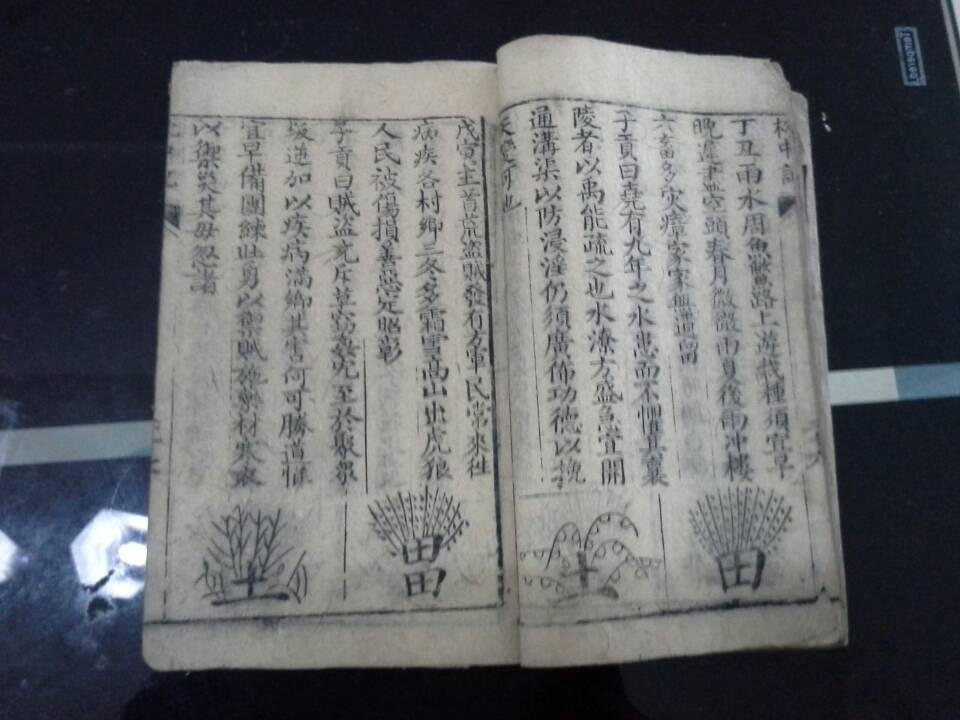 丁丑雨水周魚鱉路上游栽種須宜早
晚遲半無空頭春月微微雨夏後雨冲樓
六畜多災瘴家家
子貢曰堯有九年之水患而不懼其襄
陵者以禹能疏之也水潦方盛急宜開
通溝渠以防浸淫仍須廣佈功德以挽
天
戊寅主首荒盜賊發有方軍民常來往
病疾各村鄉三冬多霜雪高山出虎狼
人民被傷損善惡定昭彰
子貢曰賊盜充斥草寇姦宄至於聚眾
叛逆加以疾病滿鄉其害何可勝道惟
宜早備團練壯勇以禦賊施藥材寒衣
以禦災其毋忽諸
田
土
田田
土